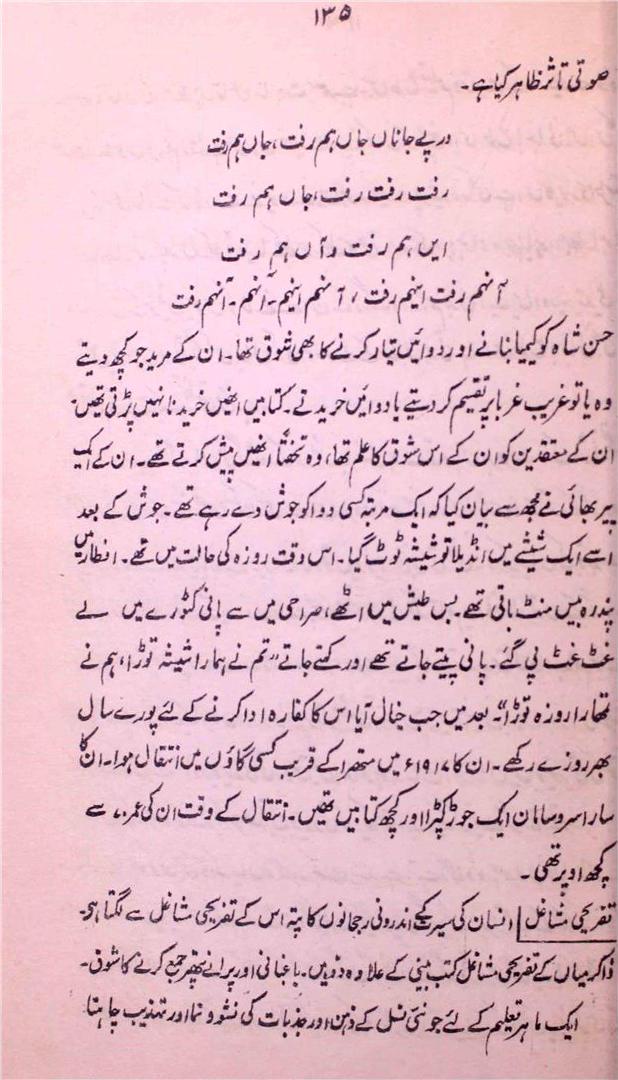 ۱۳۵
صوتی تاثر ظاہر کیا ہے۔
در پے جاناں جاں ہم رفت، جاں ہم رفت
رفت رفت رفت، جاں ہم رفت
ایں ہم رفت و آں ہم رفت
آنہم رفت اینہم رفت، آنہم اینہم۔ انہم۔ آنہم رفت
حسن شاہ کو کیمیا بنانے اور دوائیں تیار کرنے کا بھی شوق تھا۔ ان کے مرید جو کچھ دیتے
وہ یا تو غریب غربا پر تقسیم کر دیتے یا دوائیں خریدتے۔ کتابیں انھیں خریدنا نہیں پڑتی تھیں۔
ان کے معتقدین کو ان کے اس شوق کا علم تھا، وہ تحفتاً انھیں پیش کرتے تھے۔ ان کے ایک
پیر بھائی نے مجھ سے بیان کیا کہ ایک مرتبہ کسی دوا کو جوش دے رہے تھے۔ جوش کے بعد
اسے ایک شیشے میں انڈیلا تو شیشہ ٹوٹ گیا۔ اس وقت روزہ کی حالت میں تھے۔ افطار میں
پندرہ بیس منٹ باقی تھے۔ بس طیش میں اٹھے، صراحی میں سے پانی کٹورے میں لے
غٹ غٹ پی گئے۔ پانی پیتے جاتے تھے اور کہتے جاتے "تم نے ہمارا شیشہ توڑا، ہم نے
تمھارا روزہ توڑا"۔ بعد میں جب خیال آیا اس کا کفارہ ادا کرنے کے لئے پورے سال
بھر روزے رکھے۔ ان کا ۱۹۱۷ء میں متھرا کے قریب کسی گاؤں میں انتقال ہوا۔ ان کا
سارا سر و سامان ایک جوڑ کپڑا اور کچھ کتابیں تھیں۔ انتقال کے وقت ان کی عمر ۷۰ سے
کچھ اوپر تھی۔
تفریحی مشاغل انسان کی سیر کیجے اندرونی رجحانوں کا پتہ اس کے تفریحی مشاغل سے لگتا ہی۔
ذاکر میاں کے تفریحی مشاغل کتب بینی کے علاوہ دو ہیں۔ باغبانی اور پرانے پتھر جمع کرنے کا شوق۔
ایک ماہر تعلیم کے لئے جو نئی نسل کے ذہن اور جذبات کی نشو و نما اور تہذیب چاہتا